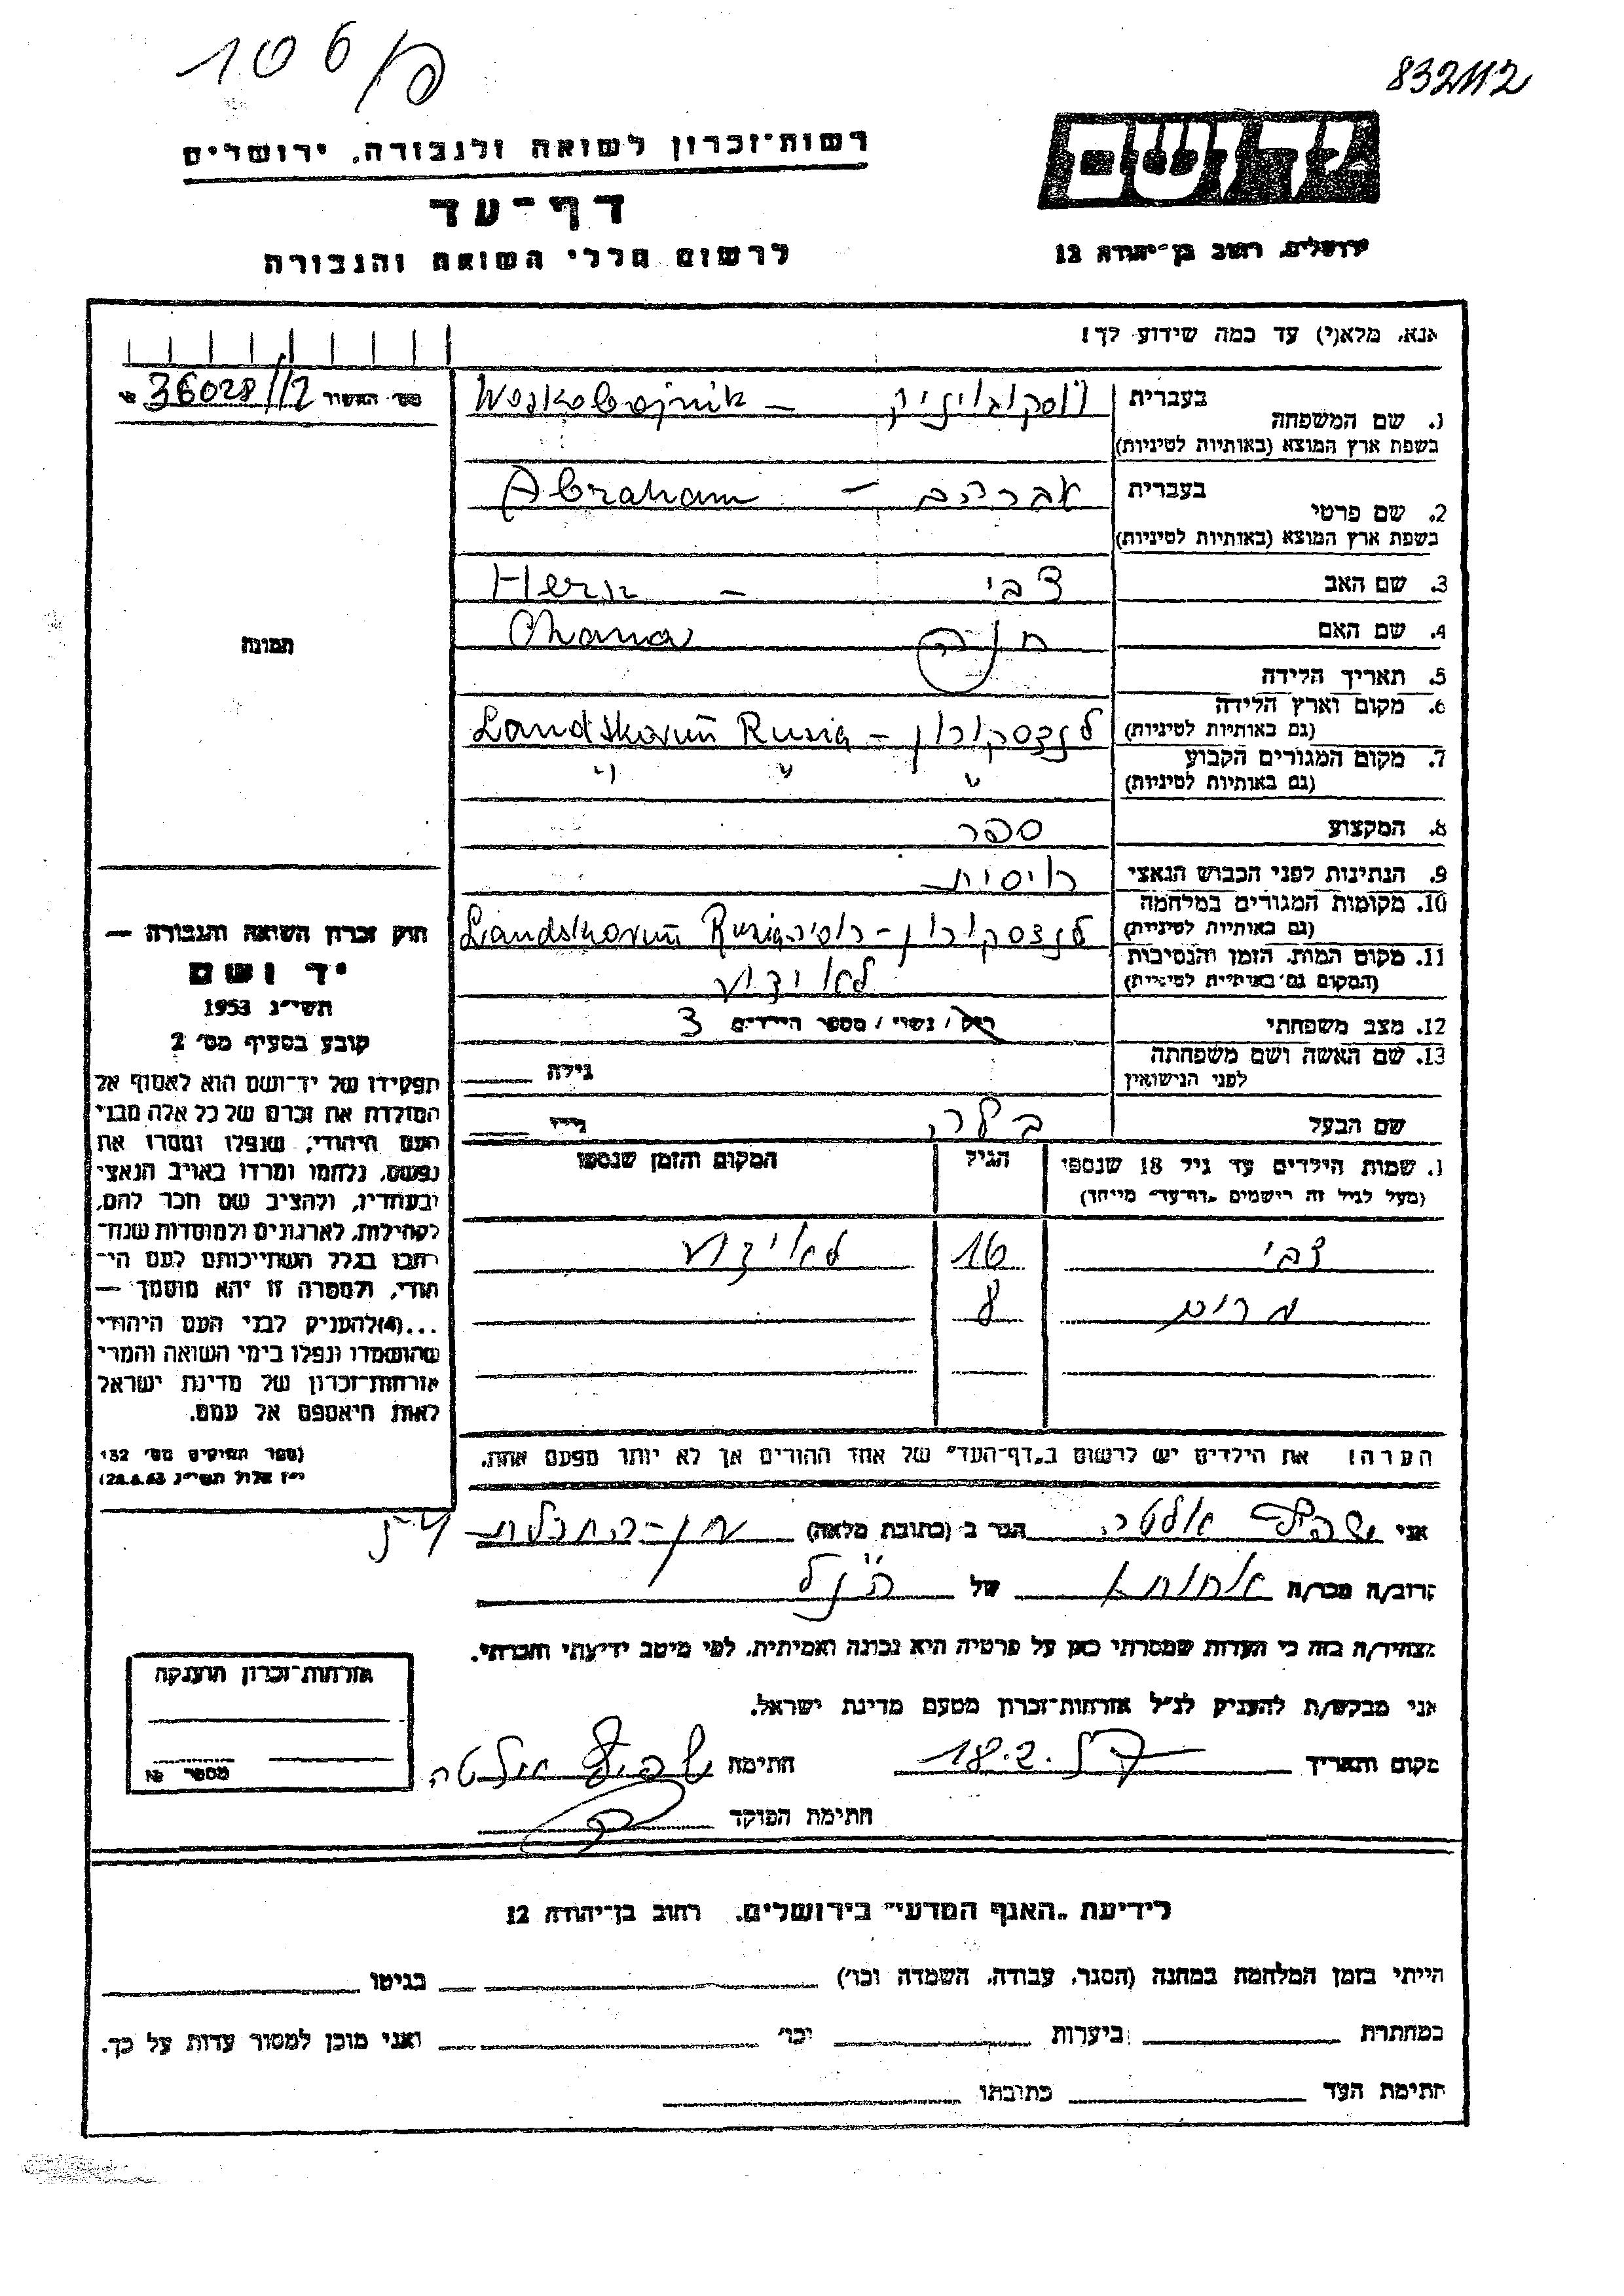 106/פ
832112
רשות־זכרון לשואה ולגבורה, ירושלים
דף־עד
לרשום חללי השואה והגבורה
יד ושם
ירושלים, רחוב בן־יהודה 12
אנא, מלא(י) עד כמה שידוע לך!
מס׳ האשור 36028/12
1. שם המשפחה
בעברית
Woskobojnik – ווסקובויניק
בשפת ארץ המוצא (באותיות לטיניות)
2. שם פרטי
בעברית
Abraham – אברהם
בשפת ארץ המוצא (באותיות לטיניות)
3. שם האב
Hersz – צבי
4. שם האם
Chana חנה
5. תאריך הלידה
6. מקום וארץ הלידה
(גם באותיות לטיניות)
Landskoruń Rusia – לנדסקורון
7. מקום המגורים הקבוע
(גם באותיות לטיניות)
" " "
8. המקצוע
ספר
9. הנתינות לפני הכבוש הנאצי
רוסית
10. מקומות המגורים במלחמה
(גם באותיות לטיניות)
Landskoruń Rusia לנדסקורון – רוסיה
11. מקום המות, הזמן והנסיבות
(המקום גם באותיות לטיניות)
לא ידוע
12. מצב משפחתי
רווק / נשוי / מספר הילדים 3
13. שם האשה ושם משפחתה
לפני הנישואין
גילה
שם הבעל
בלה
גילו
תמונה
חוק זכרון השואה והגבורה —
יד ושם
תשי״ג 1953
קובע בסעיף מס׳ 2
תפקידו של יד־ושם הוא לאסוף אל
המולדת את זכרם של כל אלה מבני
העם היהודי, שנפלו ומסרו את
נפשם, נלחמו ומרדו באויב הנאצי
ובעוזריו, ולהציב שם וזכר להם,
לקהילות, לארגונים ולמוסדות שנח־
רבו בגלל השתייכותם לעם היהו־
די, ולמטרה זו יהא מוסמך —
...(4)להעניק לבני העם היהודי
שהושמדו ונפלו בימי השואה והמרי
אזרחות־זכרון של מדינת ישראל
לאות היאספם אל עמם.
(ספר החוקים מס׳ 132
י״ז אלול תשי״ג 28.8.53)
1. שמות הילדים עד גיל 18 שנספו
(מעל לגיל זה רישמים „דף־עד״ מיוחד)
הגיל
המקום והזמן שנספו
צבי 16 לא ידוע
מרים 8
הערה: את הילדים יש לרשום ב„דף־העד״ של אחד ההורים אך לא יותר מפעם אחת.
אני אלטה הגר ב (כתובת מלאה)
קרוב/ה מכר/ה אחות של הנ״ל
מצהיר/ה בזה כי העדות שמסרתי כאן על פרטיה היא נכונה ואמיתית, לפי מיטב ידיעתי והכרתי.
אני מבקש/ת להעניק לנ״ל אזרחות־זכרון מטעם מדינת ישראל.
מקום ותאריך 18.2. חתימה אלטה
חתימת הפוקד
אזרחות־זכרון הוענקה
מספר №
לידיעת „האגף המדעי״ בירושלים, רחוב בן־יהודה 12
הייתי בזמן המלחמה במחנה (הסגר, עבודה, השמדה וכו׳) בגיטו
במחתרת ביערות וכו׳ ואני מוכן למסור עדות על כך.
חתימת העד כתובתו